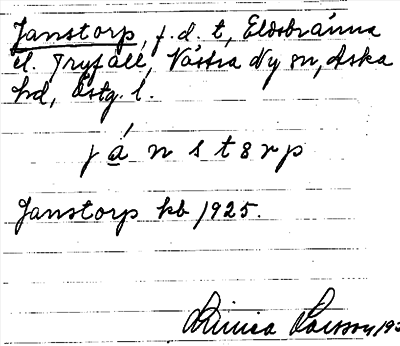 Janstorp, f.d. t, Eldsbränna
el. Trysäll, Västra Ny sn, Aska
hd, Östg. l.
j a n s t ɜ r p
Janstorp kb 1925.
Larsson 193